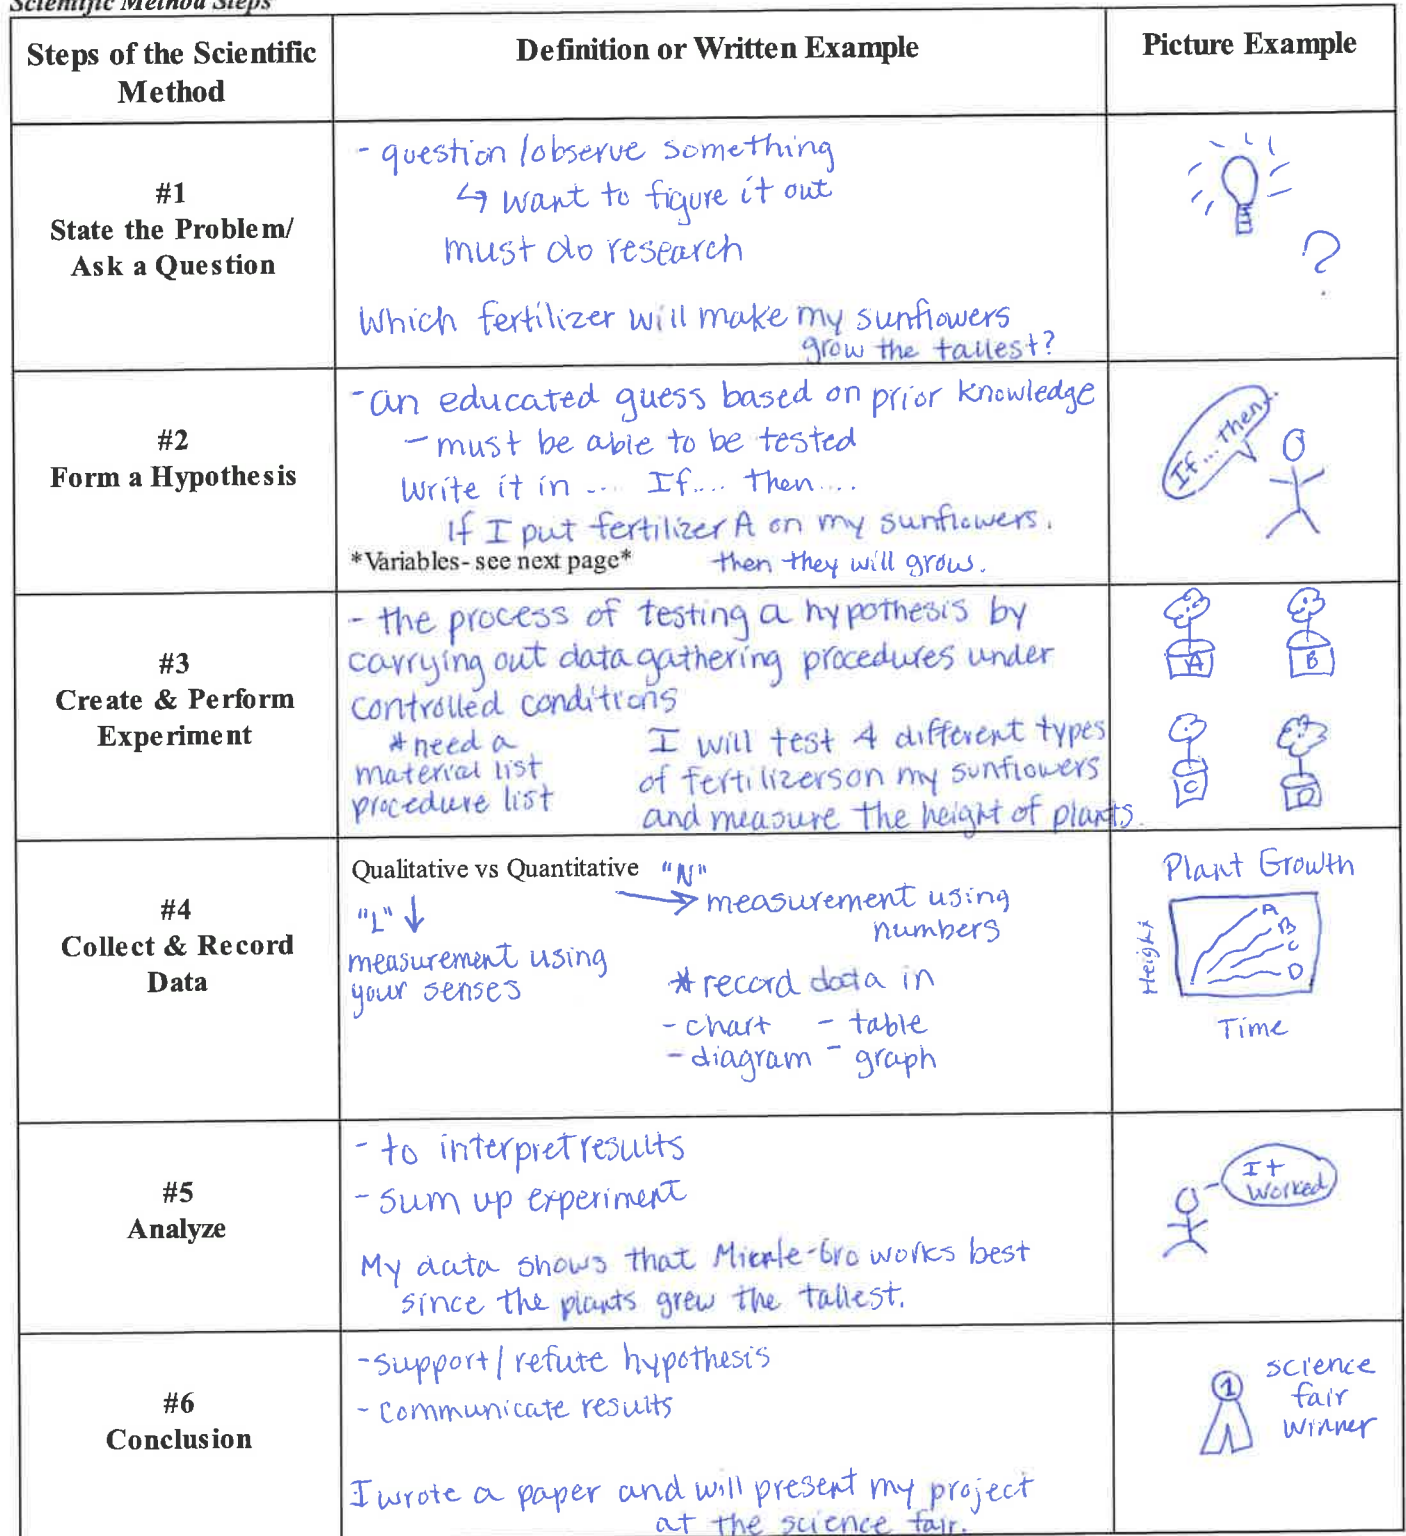 Scientific Method Steps
Steps of the Scientific
Method
Definition or Written Example
Picture Example
#1
State the Problem/
Ask a Question
- question/observe something
↳ want to figure it out
must do research
Which fertilizer will make my sunflowers
grow the tallest?
?
#2
Form a Hypothesis
- an educated guess based on prior knowledge
- must be able to be tested
Write it in .... If.... then....
If I put fertilizer A on my sunflowers.
*Variables- see next page* then they will grow.
If... then...
#3
Create & Perform
Experiment
- the process of testing a hypothesis by
carrying out data gathering procedures under
controlled conditions
* need a
material list
procedure list
I will test 4 different types
of fertilizers on my sunflowers
and measure the height of plants.
A B
C D
#4
Collect & Record
Data
Qualitative vs Quantitative "N"
→ measurement using
numbers
"L" ↓
measurement using
your senses
* record data in
- chart - table
- diagram - graph
Plant Growth
Height
A
B
C
D
Time
#5
Analyze
- to interpret results
- sum up experiment
My data shows that Miracle-Gro works best
since the plants grew the tallest.
It
worked
#6
Conclusion
- support/refute hypothesis
- communicate results
I wrote a paper and will present my project
at the science fair.
1
science
fair
winner